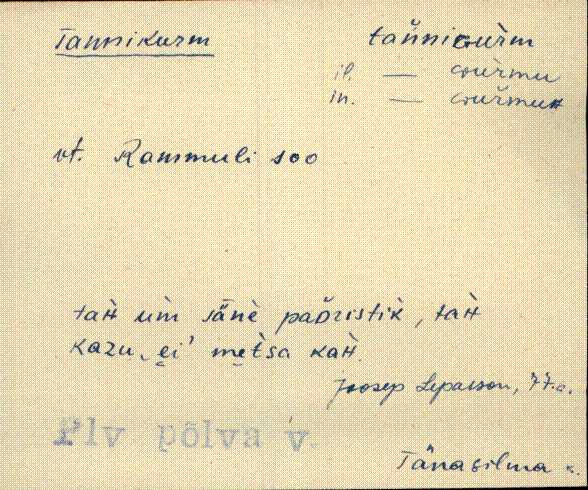 Tannikurm
tan̆niɢùrm
il. — ɢùrmu
in. — ɢŭrmuʜ
vt. Rammuli soo
taʜ um̀ sänè paŏristik̀, taʜ
kazu˛ ei' metsa kaʜ.
Joosep Leparson, 77.a.
Plv põlva v.
Tänasilma k.